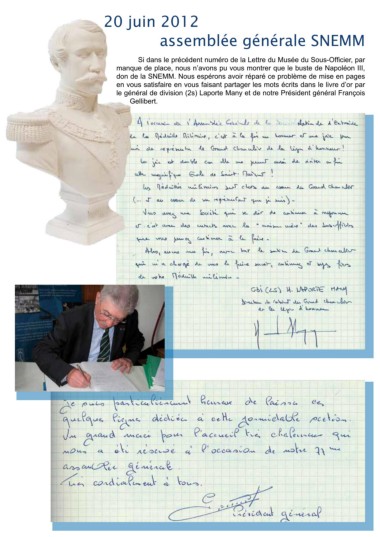 20 juin 2012
assemblée générale SNEMM
Si dans le précédent numéro de la Lettre du Musée du Sous-Officier, par
manque de place, nous n'avons pu vous montrer que le buste de Napoléon III,
don de la SNEMM. Nous espérons avoir réparé ce problème de mise en pages
en vous satisfaire en vous faisant partager les mots écrits dans le livre d'or par
le général de division (2s) Laporte Many et de notre Président général François
Gellibert.
A l'occasion de l'Assemblée Générale de la Société Nationale d'Entraide
de la Médaille Militaire, c'est à la fois un honneur et une joie que
de représenter le Grand Chancelier de la Légion d'honneur !
La joie est double car elle me permet aussi de
magnifique Ecole de Saint Maixent !
Les Médaillés militaires sont chers au cœur du Grand Chancelier
(et au cœur de son représentant que je suis).
Vous avez une Société qui se doit de continuer à
et c'est avec des
que vous pouvez continuer à le faire.
Alors, encore une fois, avec tout le soutien du Grand Chancelier
qui m'a chargé de vous le faire savoir, et soyez fiers
de votre Médaille militaire.
GDI (2S) H LAPORTE MANY
Directeur de Cabinet du Grand Chancelier
de la Légion d'honneur
Je suis particulièrement heureux de laisser ces
quelques lignes dédiées à cette formidable section.
Un grand merci pour l'accueil très chaleureux qui
nous a été réservé à l'occasion de notre
assemblée générale
cordialement à tous.
Président général